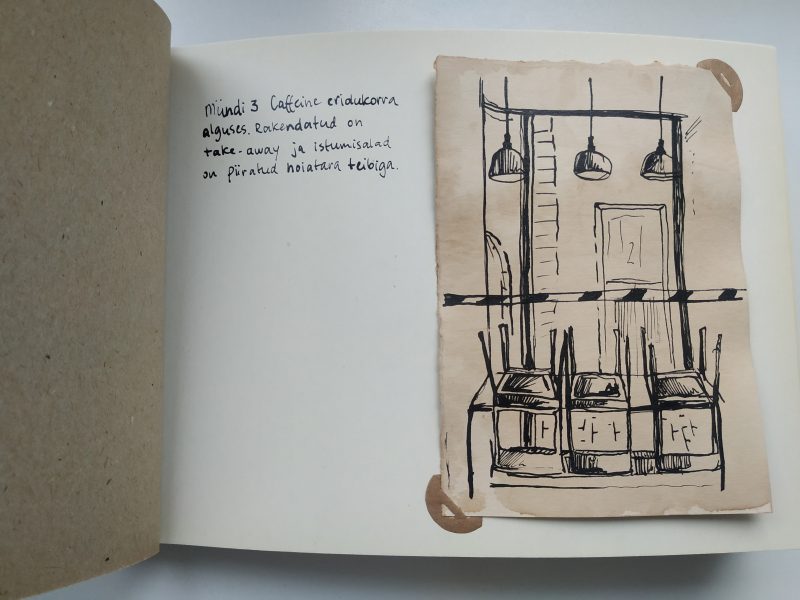 Mündi 3 Caffeine eridukorra
alguses. Rakendatud on
take-away ja istumisalad
on piiratud hoiatara teibiga.
12